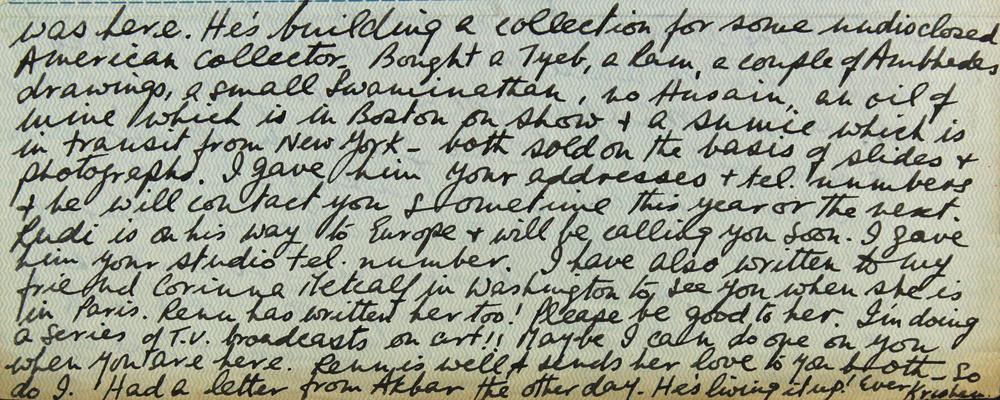 was here. He's building a collection for some undisclosed
American collector. Bought a Tyeb, a Ram, a couple of Ambhedas
drawings, a small Swaminathan, no Husain, an oil of
mine which is in Boston on show + a sumie which is
in transit from New York - both sold on the basis of slides +
photographs. I gave him your addresses + tel. numbers
+ he will contact you sometime this year or the next.
Rudi is on his way to Europe + will be calling you soon. I gave
him your studio tel. number. I have also written to my
friend Corinna Metcalf in Washington to see you when she is
in Paris. Renu has written her too! Please be good to her. I'm doing
a series of T.V. broadcasts on art!! Maybe I can do one on you
when you are here. Renu is well & sends her love to you both - So
do I. Had a letter from Akbar the other day. He's living it up! Ever Krishen.